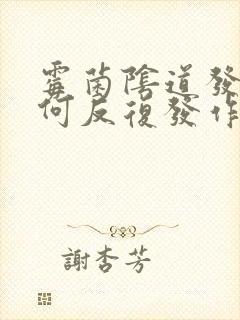 霉菌陰道發
何反復發作
謝杏芳